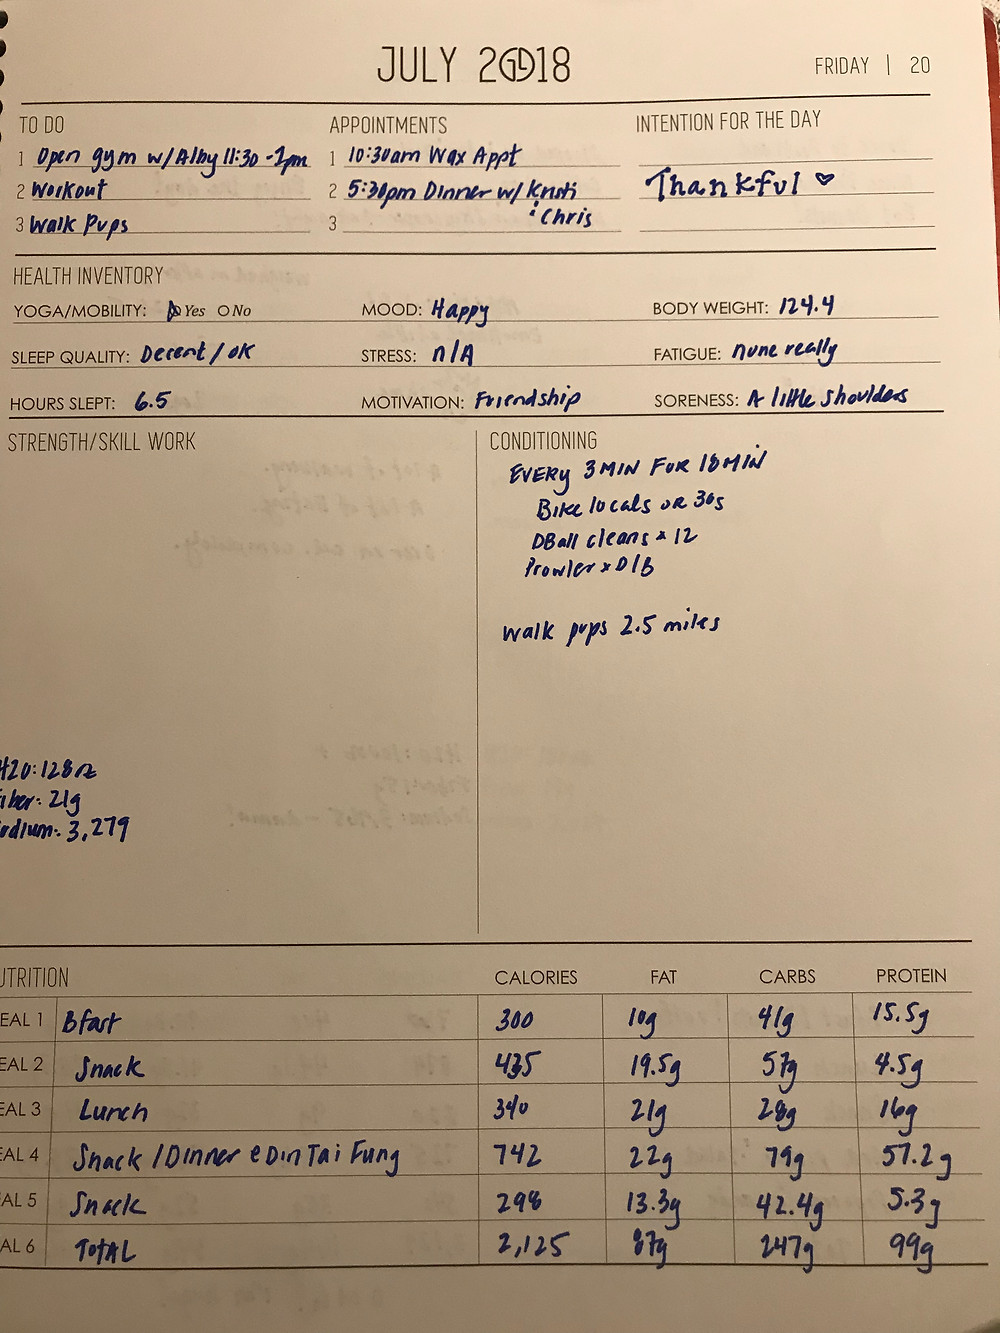 JULY 2018
FRIDAY | 20
TO DO
1 Open gym w/Alby 11:30 - 1pm
2 Workout
3 Walk Pups
APPOINTMENTS
1 10:30am Wax Appt
2 5:30pm Dinner w/ Kristi
: Chris
3
INTENTION FOR THE DAY
Thankful ♡
HEALTH INVENTORY
YOGA/MOBILITY: Yes No MOOD: Happy BODY WEIGHT: 124.4
SLEEP QUALITY: Decent / OK STRESS: n/A FATIGUE: none really
HOURS SLEPT: 6.5 MOTIVATION: Friendship SORENESS: A little shoulders
STRENGTH/SKILL WORK
H20: 128oz
iber: 21g
odium: 3,279
CONDITIONING
EVERY 3 MIN FOR 18 MIN
Bike 10cals or 30s
DBall cleans x 12
Prowler x D/B
Walk pups 2.5 miles
UTRITION CALORIES FAT CARBS PROTEIN
EAL 1 Bfast 300 10g 41g 15.5g
EAL 2 Snack 435 19.5g 57g 4.5g
EAL 3 Lunch 340 21g 28g 16g
EAL 4 Snack / Dinner @ Din Tai Fung 742 22g 79g 57.2g
AL 5 Snack 298 13.3g 42.4g 5.3g
AL 6 TOTAL 2,125 87g 247g 99g